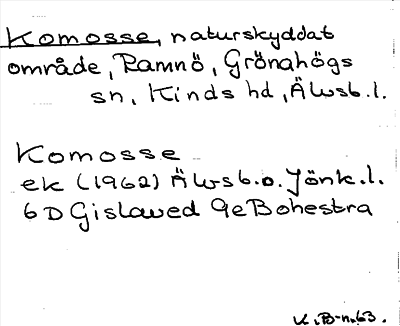 Komosse, naturskyddat
område, Ramnö, Grönahögs
sn, Kinds hd, Älvsb.l.
Komosse
ek (1962) Älvsb.o.Jönk.l.
6D Gislaved 9e Bohestra
K.B-n.63.